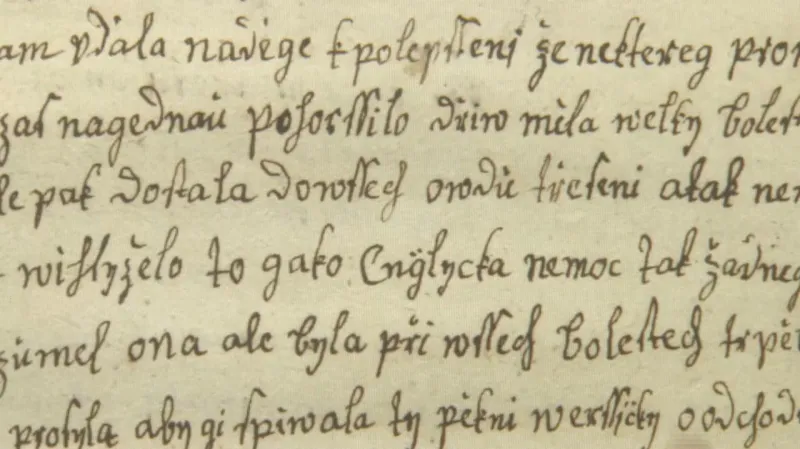 am vdala nadège k polepsseni že nektereg pro
zas nagednaú pohorssilo dřiw mèla welky boles
le pak dostala dowssech ovdů třeseni atak ne
wihlyželo to gako Englycka nemoc tak žádneg
zúmel ona ale byla při wssech bolestech trpě
prosyla aby gi spiwala ty pěkni werssičky o odchod